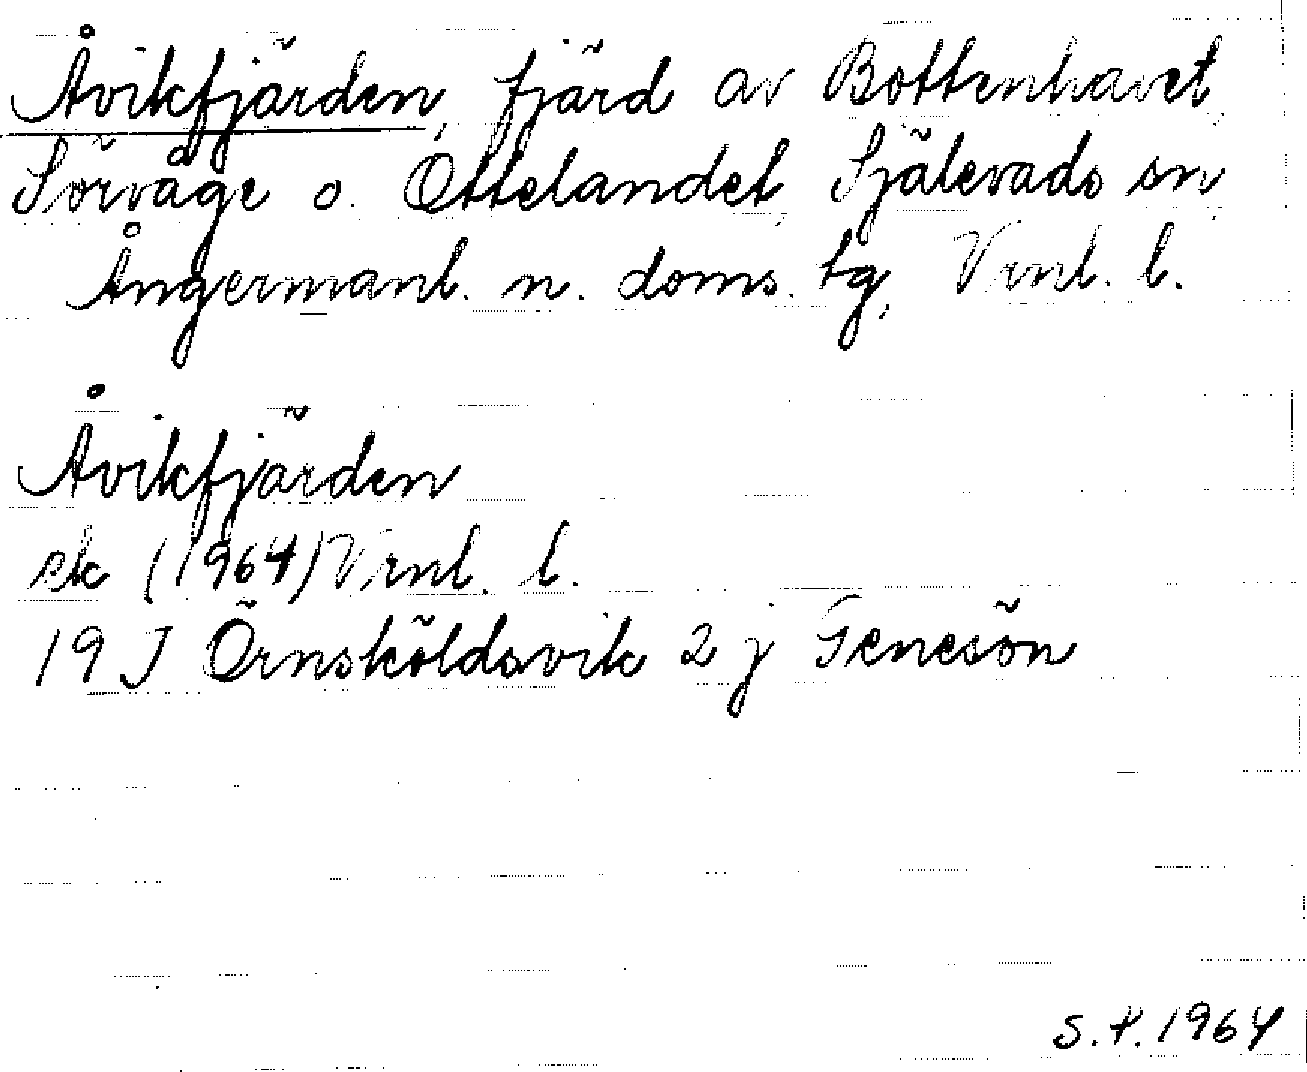 Åvikfjärden, fjärd av Bottenhavet,
Sörvåge o. Ottelandet, Själevads sn,
Ångermanl. n. doms. tg, Vrnl. l.
Åvikfjärden
ek (1964) Vrnl. l.
19 J Örnsköldsvik 2 j Genesön
S.P. 1964